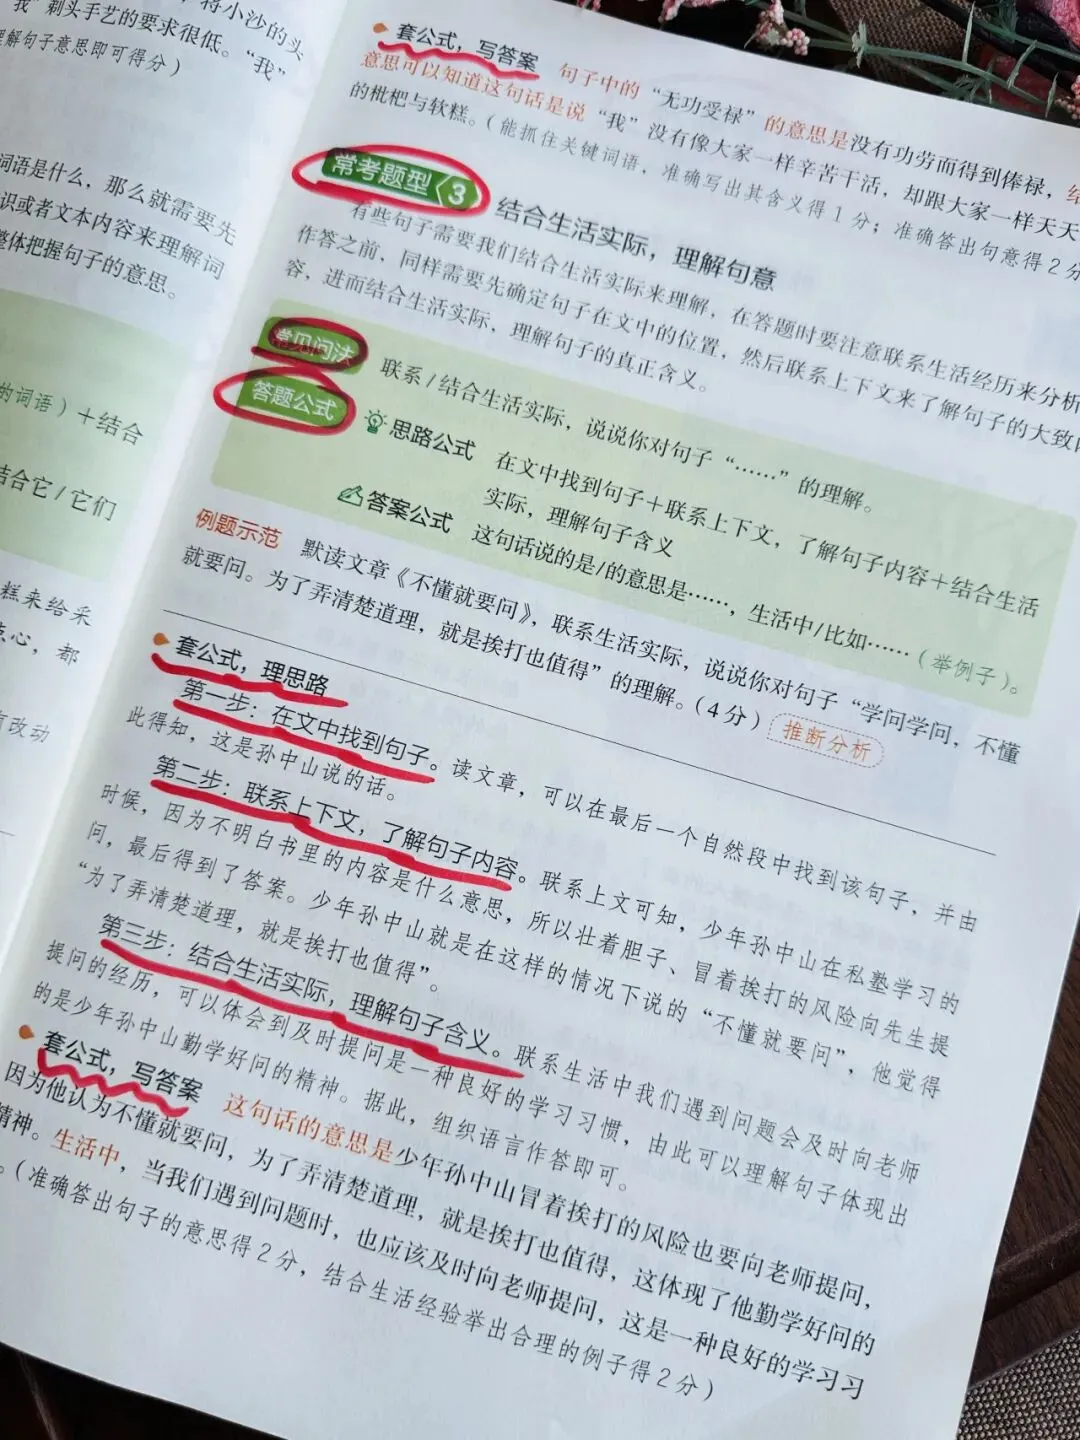 将小沙的头
我”剃头手艺的要求很低。“我”
理解句子意思即可得分）
词语是什么，那么就需要先
识或者文本内容来理解词
整体把握句子的意思。
的词语）＋结合
结合它/它们
糕来给采
点心，都
有改动
套公式，写答案 句子中的“无功受禄”的意思是没有功劳而得到俸禄，
意思可以知道这句话是说“我”没有像大家一样辛苦干活，却跟大家一样天天
的枇杷与软糕。（能抓住关键词语，准确写出其含义得1分；准确答出句意得2分
常考题型 3 结合生活实际，理解句意
有些句子需要我们结合生活实际来理解，在答题时要注意联系生活经历来分析
作答之前，同样需要先确定句子在文中的位置，然后联系上下文来了解句子的大致内
容，进而结合生活实际，理解句子的真正含义。
常见问法 联系/结合生活实际，说说你对句子“……”的理解。
答题公式 思路公式 在文中找到句子＋联系上下文，了解句子内容＋结合生活
实际，理解句子含义
答案公式 这句话说的是/的意思是……，生活中/比如……（举例子）。
例题示范 默读文章《不懂就要问》，联系生活实际，说说你对句子“学问学问，不懂
就要问。为了弄清楚道理，就是挨打也值得”的理解。（4分） 推断分析
套公式，理思路
第一步：在文中找到句子。读文章，可以在最后一个自然段中找到该句子，并由
此得知，这是孙中山说的话。
第二步：联系上下文，了解句子内容。联系上文可知，少年孙中山在私塾学习的
时候，因为不明白书里的内容是什么意思，所以壮着胆子、冒着挨打的风险向先生提
问，最后得到了答案。少年孙中山就是在这样的情况下说的“不懂就要问”，他觉得
“为了弄清楚道理，就是挨打也值得”。
第三步：结合生活实际，理解句子含义。联系生活中我们遇到问题会及时向老师
提问的经历，可以体会到及时提问是一种良好的学习习惯，由此可以理解句子体现出
的是少年孙中山勤学好问的精神。据此，组织语言作答即可。
套公式，写答案 这句话的意思是少年孙中山冒着挨打的风险也要向老师提问，
因为他认为不懂就要问，为了弄清楚道理，就是挨打也值得，这体现了他勤学好问的
精神。生活中，当我们遇到问题时，也应该及时向老师提问，这是一种良好的学习习
。（准确答出句子的意思得2分，结合生活经验举出合理的例子得2分）